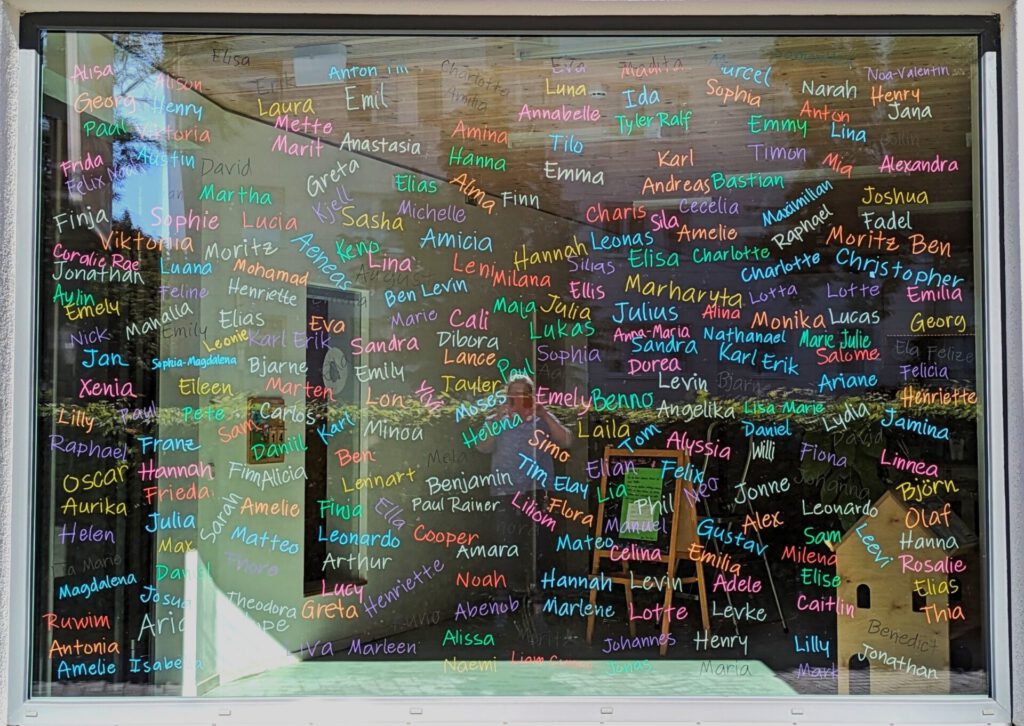 Elisa Eva Madita
Alisa Alison Erik Anton Emil Charlotte Luna Ida Sophia Narah Noa-Valentin Henry
Georg Henry Laura Annabelle Tyler Ralf Emmy Anton Jana
Paal Viktoria Mette Anastasia Amina Tilo Lina
Frida Austin Marit Hanna Karl Timon Mia Alexandra
Felix David Greta Elias Alma Emma Andreas Bastian Joshua
Martha Kjell Finn Cecelia Maximilian
Finja Sophie Lucia Sasha Michelle Charis Sila Raphael Fadel
Viktoriia Moritz Aeneas Keno Amicia Hannah Leonas Amelie Moritz Ben
Coralie Rae Luana Mohamad Lina Leni Silias Elisa Charlotte Charlotte Christopher
Jonathan Feline Henriette Ben Levin Milana Ellis Marharyta Lotta Lotte Emilia
Aylin Emely Manalia Elias Marie Maja Julia Julius Alina Monika Lucas Georg
Nick Emily Leonie Karl Erik Eva Cali Lukas Anna-Maria Nathanael Marie Julie
Jan Sophia-Magdalena Bjarne Sandra Dibora Lance Sophia Sandra Karl Erik Salome Ela Felize
Xenia Eileen Marten Emily Tayler Paul Dorea Levin Bjarne Ariane Felicia
Lilly Paul Pete Carlos Lon Vivi Moses Emely Benno Angelika Lisa Marie Lydia Henriette
Raphael Franz Sam Daniil Karl Minoa Helena Simo Laila Tom Alyssia Daniel Willi David Jamina
Oscar Hannah Finn Alicia Ben Mela Tim Elian Felix Fiona Johanna Linnea
Aurika Frieda Amelie Lennart Benjamin Elay Lia Neo Jonne Björn
Helen Julia Sarah Finja Ella Paul Rainer Liliom Flora Phil Manuel Alex Leonardo Olaf
Max Matteo Leonardo Cooper Mateo Gustav Sam Leevi Hanna
Thore Arthur Amara Celina Emilia Milena Rosalie
Magdalena Lucy Henriette Noah Hannah Levin Adele Elise Elias
Ruwim Theodora Greta Abenub Marlene Lotte Levke Caitlin Thia
Antonia Marleen Alissa Johannes Henry Lilly Benedict
Amelie Isabella Naemi Jonas Maria Mark Jonathan